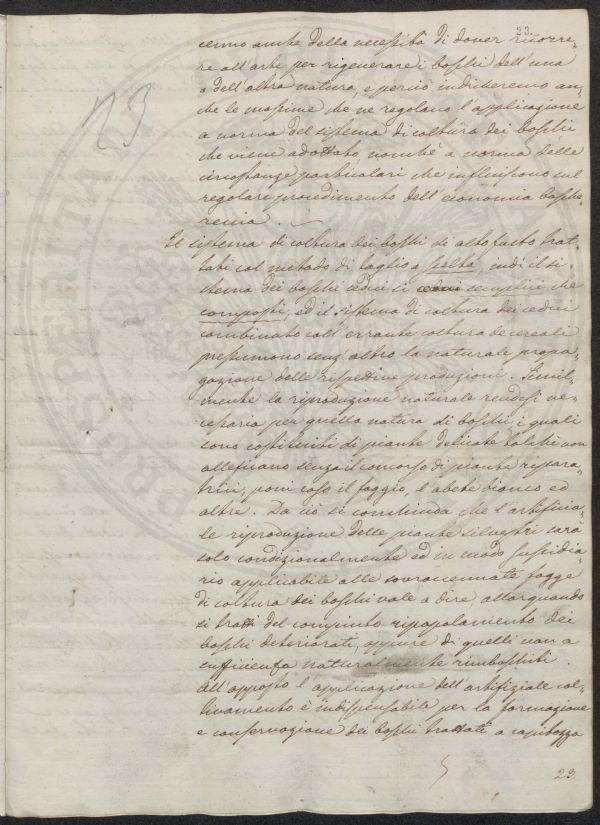 23.
N 3
cenno anche della necessità di dover ricorre-
re all'arte per rigenerare i boschi dell'una
o dell'altra natura, e perciò indicheremo an-
che le massime che ne regolano l'applicazione
a norma del sistema di coltura dei boschi
che viene adottato, nonchè a norma delle
circostanze particolari che influiscono sul
regolare procedimento dell'economia bosche-
reccia.
Il sistema di coltura dei boschi di alto fusto trat-
tati col metodo di taglio a scelta, indi il si-
stema dei boschi cedui sì semplici che
composti, ed il sistema di coltura dei cedui
combinato coll'errante coltura de cereali
presumono senz'altro la naturale propa-
gazione delle rispettive produzioni. Simil-
mente la riproduzione naturale rendesi ne-
cessaria per quella natura di boschi i quali
sono costituiti di piante delicate tali che non
alleficano senza il concorso di pianta ripara-
trici, poni caso il faggio, l'abete bianco ed
altre. Da ciò si conchiuda che l'artificia-
le riproduzione delle piante silvestri sarà
solo condizionalmente ed in modo sussidia-
rio applicabile alle sovraccennate fogge
di coltura dei boschi vale a dire allorquando
si tratti del compiuto ripopolamento dei
boschi deteriorati, oppure di quelli non a
sufficienza naturalmente rimboschiti.
All'apposto l'applicazione dell'artifiziale col-
tivamento è indispensabile per la formazione
e conservazione dei boschi trattati a capitozza
23.
PROSPERITA